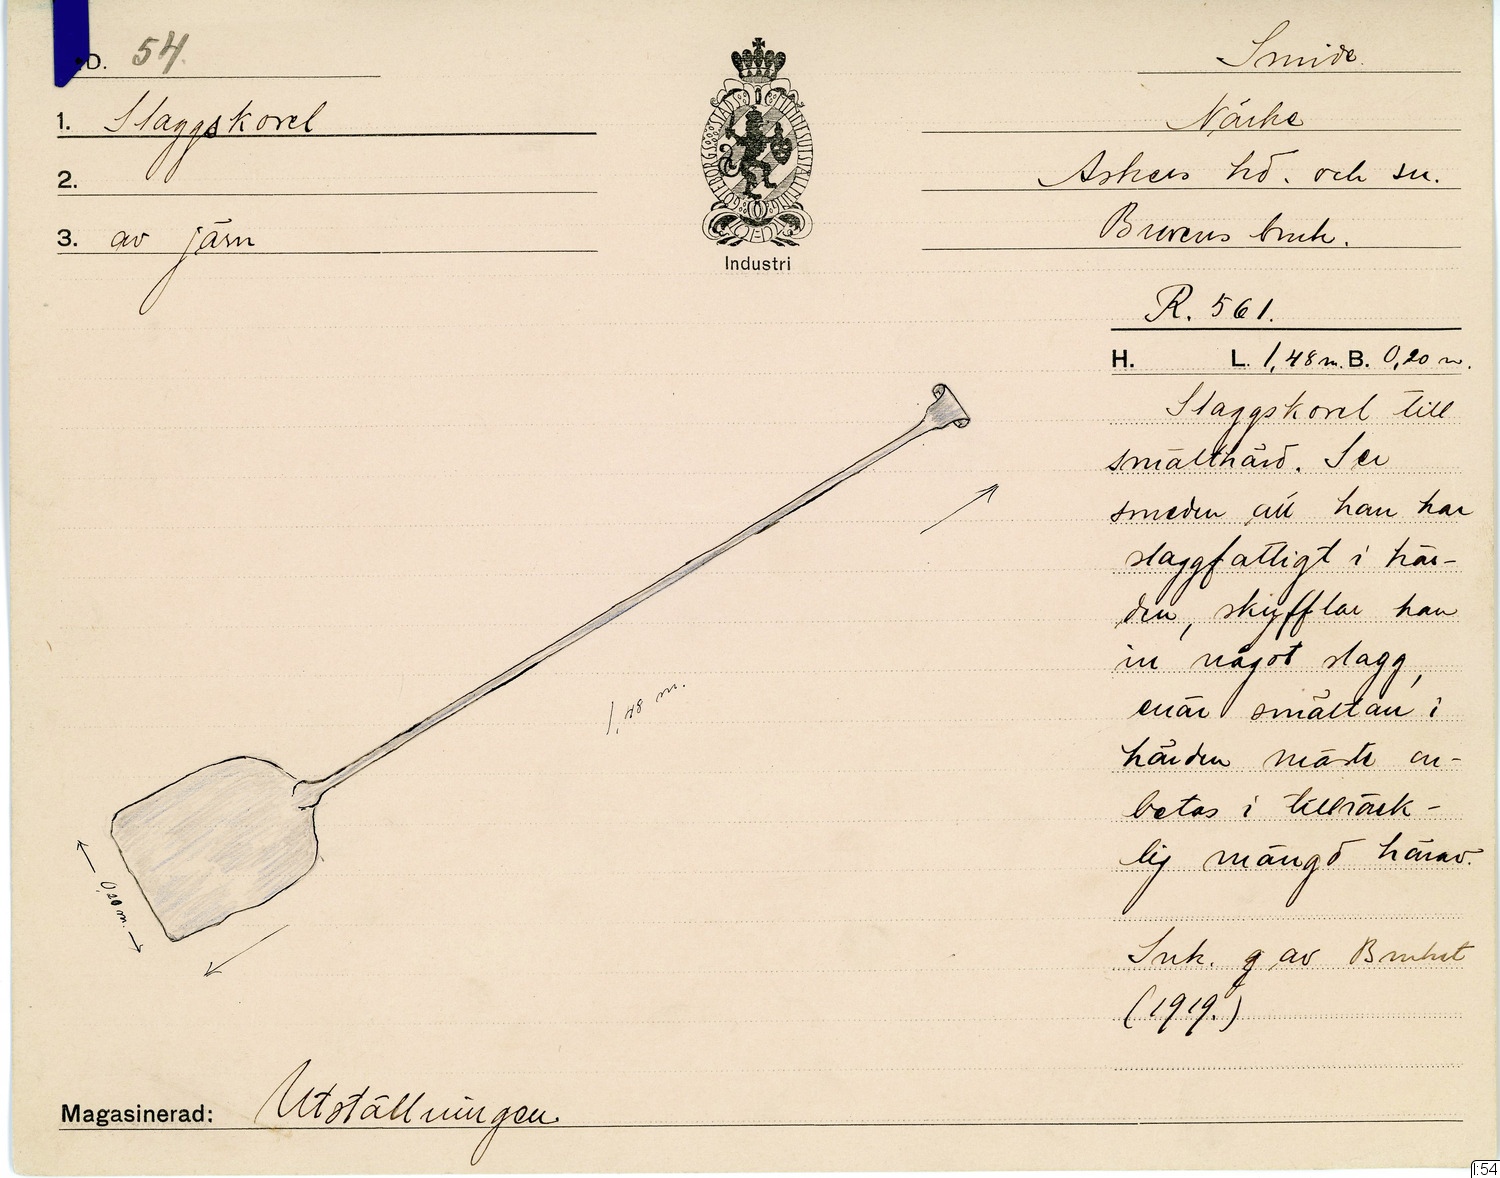 D. 54.
1. Slaggskovel
2.
3. av järn
GÖTEBORGS STADS JUBILEUMSUTSTÄLLNING
Industri
Smide.
Närke
Askers hd. och sn.
Brevens bruk.
R. 561.
H. L. 1,48 m. B. 0,20 m.
Slaggskovel till
smälthärd. Ser
smeden att han har
slaggfattigt i här-
den, skyfflar han
in något slagg,
enär smältan i
härden måste ar-
betas i tillräck-
lig mängd härav.
Ink. g. av Bruket
(1919.)
1,48 m.
0,20 m.
Magasinerad: Utställningen.
I:54